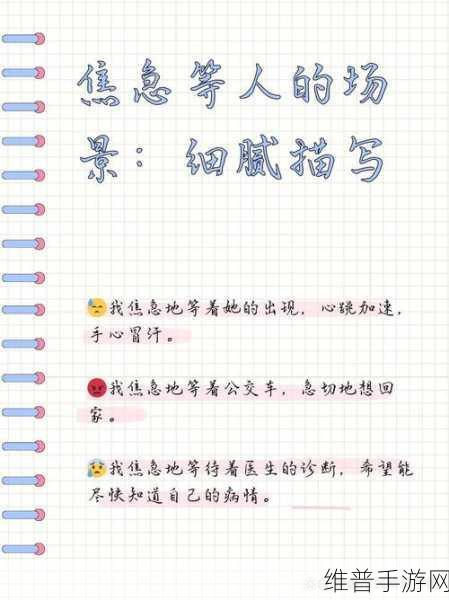 焦急等人的场
景：细腻描写
我焦急地等着她的出现，心跳加速，
手心冒汗。
我焦急地等着公交车，急切地想回
家。
我焦急地等待着医生的诊断，希望能
尽快知道自己的病情。
维普手游网